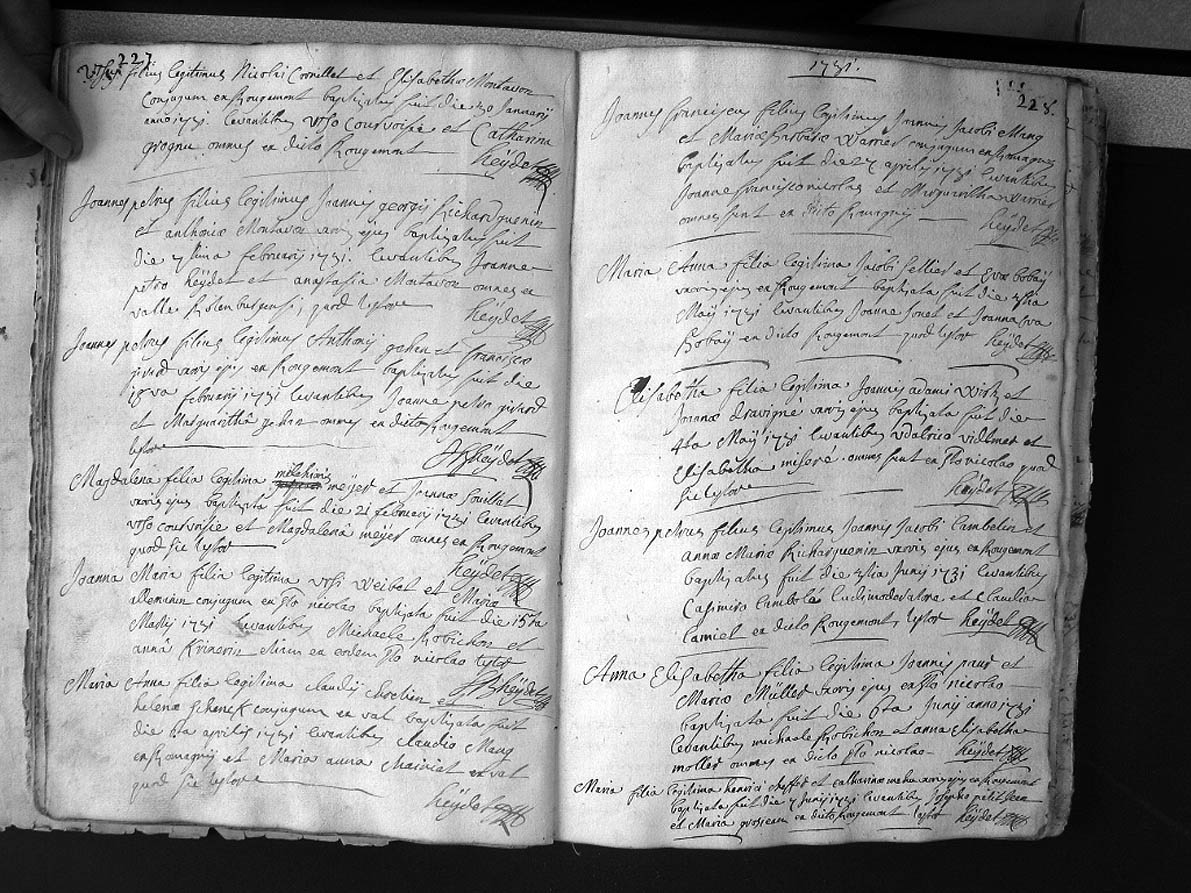 227
filius legitimus Nicolai Cornillet et Elisabetha Montavon
conjugum ex Rougemont baptizatus fuit die 30 Januarij
anno 1731. levantibus Urso Courvoisie et Catharina
grognu omnes ex dicto Rougemont Heÿdet
Joannes petrus filius legitimus Joannis georgij Richardquenin
et anthoniæ Montavon uxoris ejus baptizatus fuit
die 7tima februarij 1731. levantibus Joanne
petro heÿdet et anastasia Montavon omnes ex
valle quod testor Heÿdet
Joannes petrus filius legitimus Anthonij gehen et francisca
girard uxoris ejus ex Rougemont baptizatus fuit die
18va februarij 1731 levantibus Joanne petro girard
et Marguaritha gehan omnes ex dicto Rougemont
testor Heÿdet
Magdalena filia legitima melchioris meÿer et Joannæ souillat
uxoris ejus baptizata fuit die 21 februarij 1731 levantibus
urso courvoisie et Magdalena meÿer omnes ex Rougemont
quod sic testor Heÿdet
Joanna Maria filia legitima ursi weibel et Mariæ
allemann conjugum ex Sto nicolao baptizata fuit die 15ta
Martij 1731 levantibus Michaele Robichon et
anna etiam ex eodem Sto nicolao testor
Heÿdet
Maria Anna filia legitima claudij et
helenæ schenck conjugum ex vat baptizata fuit
die 6ta aprilis 1731 levantibus claudio Mang
ex Romagnij et Maria anna ex vat
quod sic testor
Heÿdet
1731.
228.
Joannes franciscus filius legitimus Joannis Jacobi Mang
et Mariæ barbaræ warrier conjugum ex Romagnij
baptizatus fuit die 27 aprilis 1731 levantibus
Joanne francisco nicolas et Marguaritha warrier
omnes sunt ex dicto Romagnij Heÿdet
Maria Anna filia legitima Jacobi sellier et Evæ bobaÿ
uxoris ejus ex Rougemont baptizata fuit die
Maij 1731 levantibus Joanne Jonet et Joanna Eva
Bobaÿ ex dicto Rougemont quod testor Heÿdet
Elisabetha filia legitima Joannis adami wirtz et
Joannæ dravigné uxoris ejus baptizata fuit die
4ta Maij 1731 levantibus udalrico vidtmer et
Elisabetha miseré. omnes sunt ex Sto nicolao quod
sic testor Heÿdet
Joannes petrus filius legitimus Joannis Jacobi Cambelin et
annæ Mariæ Richarquenin uxoris ejus ex Rougemont
baptizatus fuit die Junij 1731 levantibus
Casimiro Lambolé ludimoderatore et Claudia
Camiel ex dicto Rougemont testor Heÿdet
Anna Elisabetha filia legitima Joannis paur et
Mariæ Müller uxoris ejus ex Sto nicolao
baptizata fuit die 6ta Junij anno 1731
levantibus michaele Robichon et anna elisabetha
moller omnes ex dicto Sto nicolao Heÿdet
Maria filia legitima henrici scheffer et catharinæ uxoris ejus ex Rougemont
baptizata fuit die 7 Junij 1731 levantibus Josepho petitjean
et Maria grosjean ex dicto Rougemont testor Heÿdet